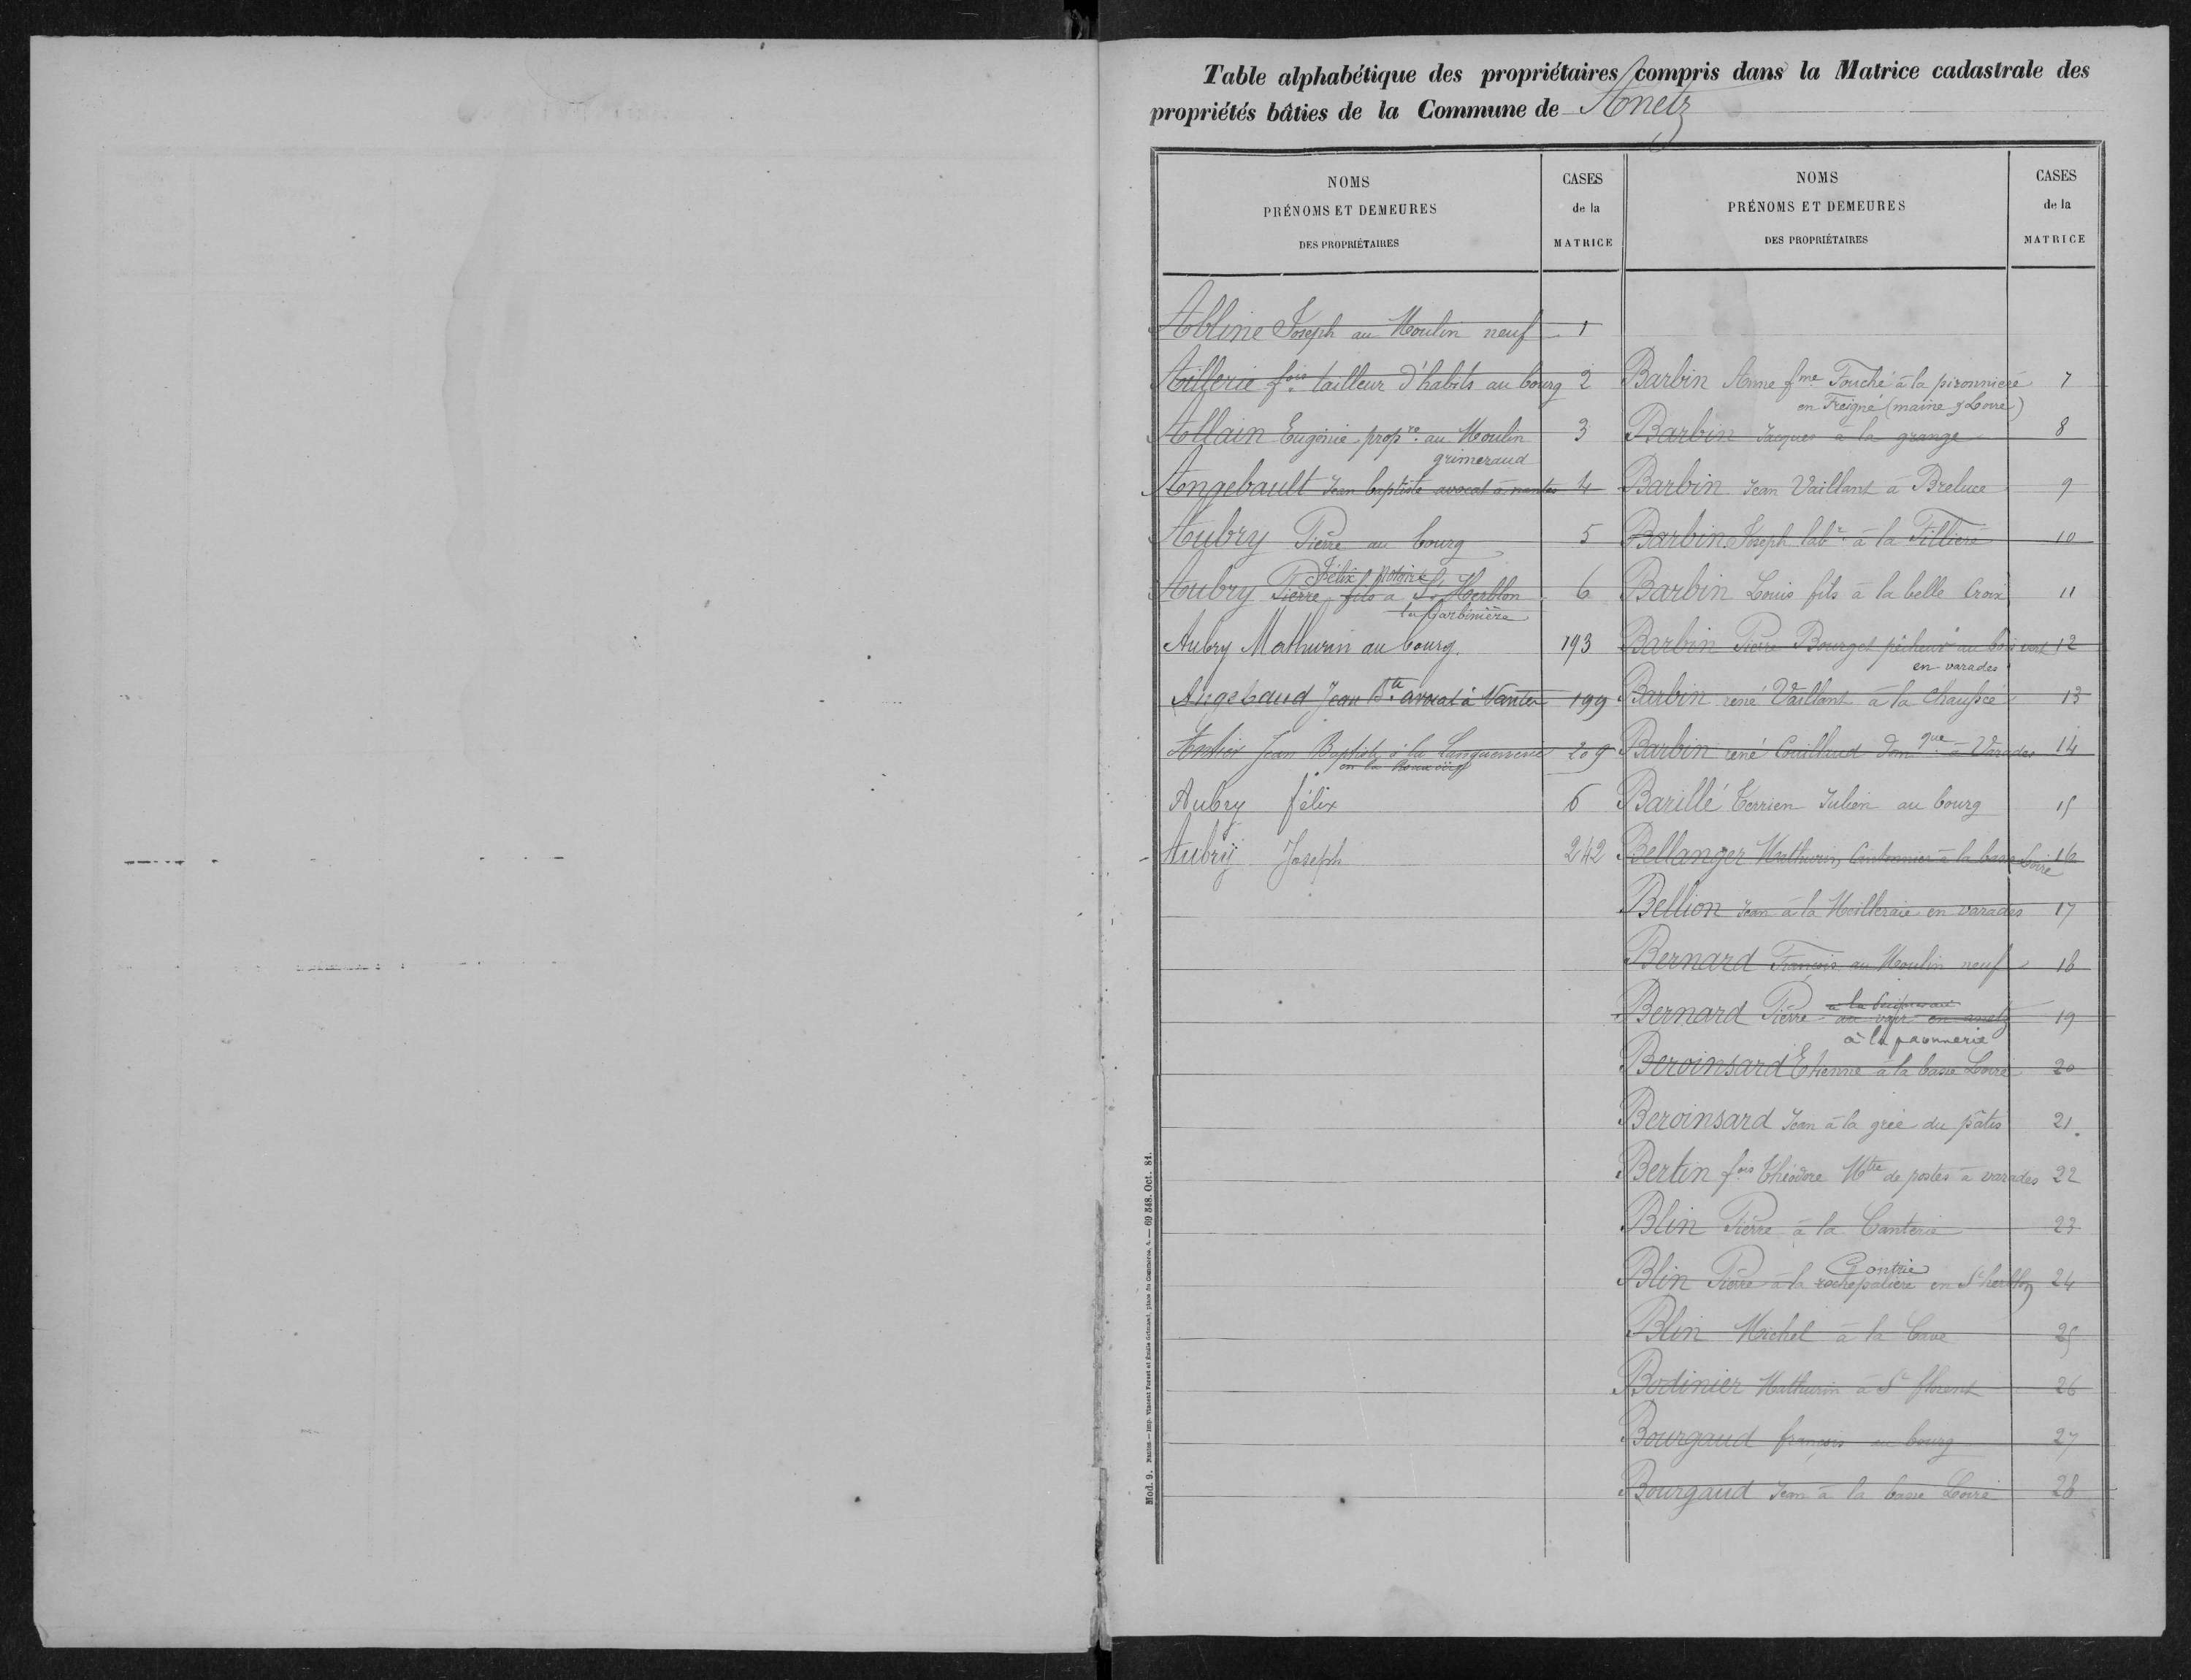 Table alphabétique des propriétaires compris dans la Matrice cadastrale des
propriétés bâties de la Commune de Anetz
NOMS
PRÉNOMS ET DEMEURES
DES PROPRIÉTAIRES
CASES
de la
MATRICE
Abline Joseph au Moulin neuf 1
Aillerie fois tailleur d'habits au bourg 2
Allain Eugénie propre au Moulin 3
grimeraud
Angebault Jean baptiste avocat à nantes 4
Aubry Pierre au bourg 5
Félix notaire
Aubry Pierre fils à St Herblon 6
la Barbinière
Aubry Mathurin au bourg. 193
Angebaud Jean Bte avocat à Nantes 199
Jean Baptiste à la 209
Aubry félix 6
Aubry Joseph 242
NOMS
PRÉNOMS ET DEMEURES
DES PROPRIÉTAIRES
CASES
de la
MATRICE
Barbin Anne fme Fouché à la pironnière 7
en Freigné (maine & Loire)
Barbin Jacques à la grange 8
Barbin Jean Vaillant à Breluce 9
Barbin Joseph labr à la Fillière 10
Barbin Louis fils à la belle Croix 11
Barbin Pierre Bourget pêcheur au bois vert 12
en varades
Barbin réné Vaillant à la Chaussée 13
Barbin réné Couilleud domque à Varades 14
Barillé Terrien Julien au bourg 15
Bellanger Mathurin, Cantonnier à la basse Loire 16
Bellion Jean à la Meilleraie en varades 17
Bernard François au Moulin neuf 18
Bernard Pierre au en anetz 19
à la paonnerie
Beroinsard Etienne à la basse Loire 20
Beroinsard Jean à la grée du pâtis 21.
Bertin fois Théodore Mtre de postes à varades 22
Blin Pierre à la Canterie 23
Gontrie
Blin Pierre à la rochepalière en St herblon 24
Blin Michel à la Cave 25
Bodinier Mathurin à St florent 26
Bourgaud françois au bourg 27
Bourgaud Jean à la basse Loire 28
Mod. 9. Nantes. — Imp. Vincent Forest et Émile Grimaud, place du Commerce, 4. — 69 348. Oct. 81.